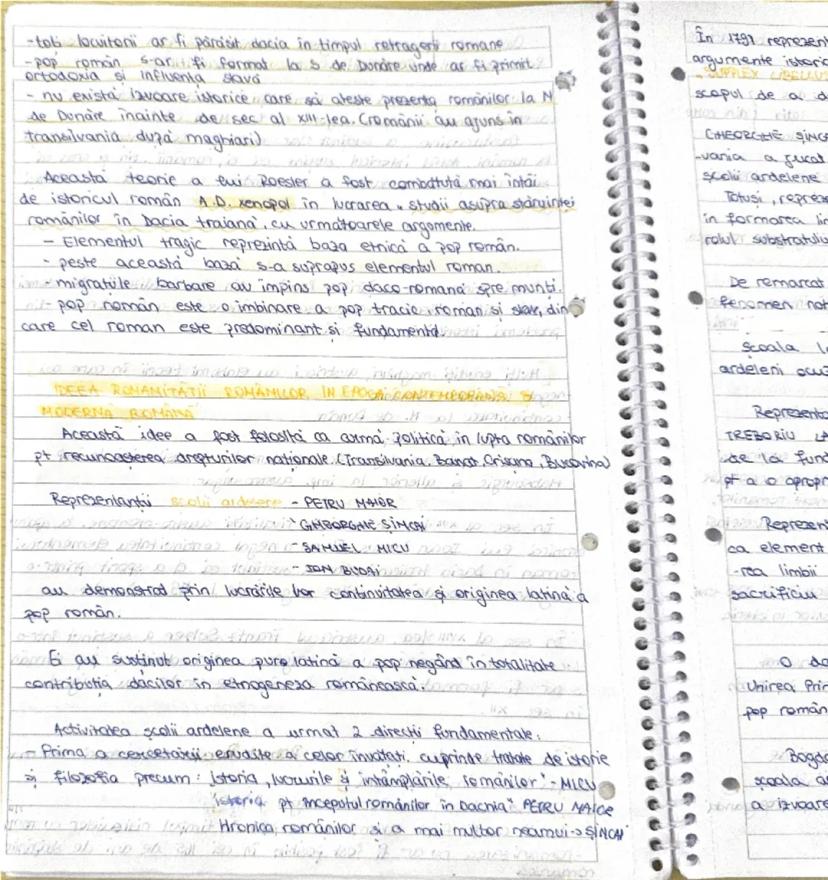 - toți locuitorii ar fi părăsit dacia în timpul retragerii romane
- pop român s-ar fi format la S de Dunăre unde ar fi primit
ortodoxia și influența slavă
- nu există izvoare istorice care să ateste prezența românilor la N
de Dunăre înainte de sec al XIII-lea. (românii au ajuns în
transilvania după maghiari)
Această teorie a lui Roesler a fost combătută mai întâi
de istoricul român A.D. xenopol în lucrarea „studii asupra stăruinței
românilor în Dacia traiană", cu următoarele argumente.
- Elementul tragic reprezintă baza etnică a pop român.
- peste această bază s-a suprapus elementul roman.
- migrațiile barbare au împins pop daco-romană spre munți.
- pop român este o îmbinare a pop tracic, roman și slav, din
care cel roman este predominant și fundamental.
IDEEA ROMANITĂȚII ROMÂNILOR ÎN EPOCA CONTEMPORANĂ &
MODERNĂ ROMÂNĂ
Această idee a fost folosită ca armă politică în lupta românilor
pt recunoașterea drepturilor naționale (Transilvania, Banat, Crișana, Bucovina)
Reprezentanții școlii ardelene - PETRU MAIOR
- GHEORGHE ȘINCAI
- SAMUEL MICU
- ION BUDAI
au demonstrat prin lucrările lor continuitatea și originea latină a
pop român.
Ei au susținut originea pure latină a pop negând în totalitate
contribuția dacilor în etnogeneza românească.
Activitatea școlii ardelene a urmat 2 direcții fundamentale:
- Prima a cercetării erudite a celor învățați, cuprinde tratate de istorie
și filozofia precum: Istoria, lucrurile și întâmplările românilor" - MICU
Istoria pt începutul românilor în Dachia" PETRU MAIOR
Hronica românilor și a mai multor neamuri -> ȘINCAI
În 1791 reprezent
argumente istoric
"SUPPLEX LIBELLUS
scopul de a d
GHEORGHE ȘINC
-vania a jucat
școlii ardelene
Totuși, repre
în formarea li
rolul substratulu
De remarcat
fenomen naț
școala l
ardeleni ocu
Reprezenta
TREBORIU LA
de la fund
pt a o apropi
Reprezen
ca element
-rea limbii
sacrificiu
O do
Unirea Prin
pop român
Bogda
școala a
a izvoare